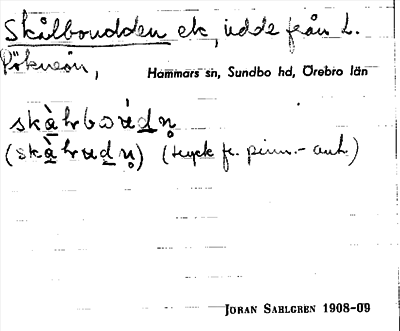 Skålboudden ek, udde från L.
Rökneön,
Hammars sn, Sundbo hd, Örebro län
skàlbωúdn̥
(skàlrudn̥) (tryck fr. pinn.- anh)
JÖRAN SAHLGREN 1908-09